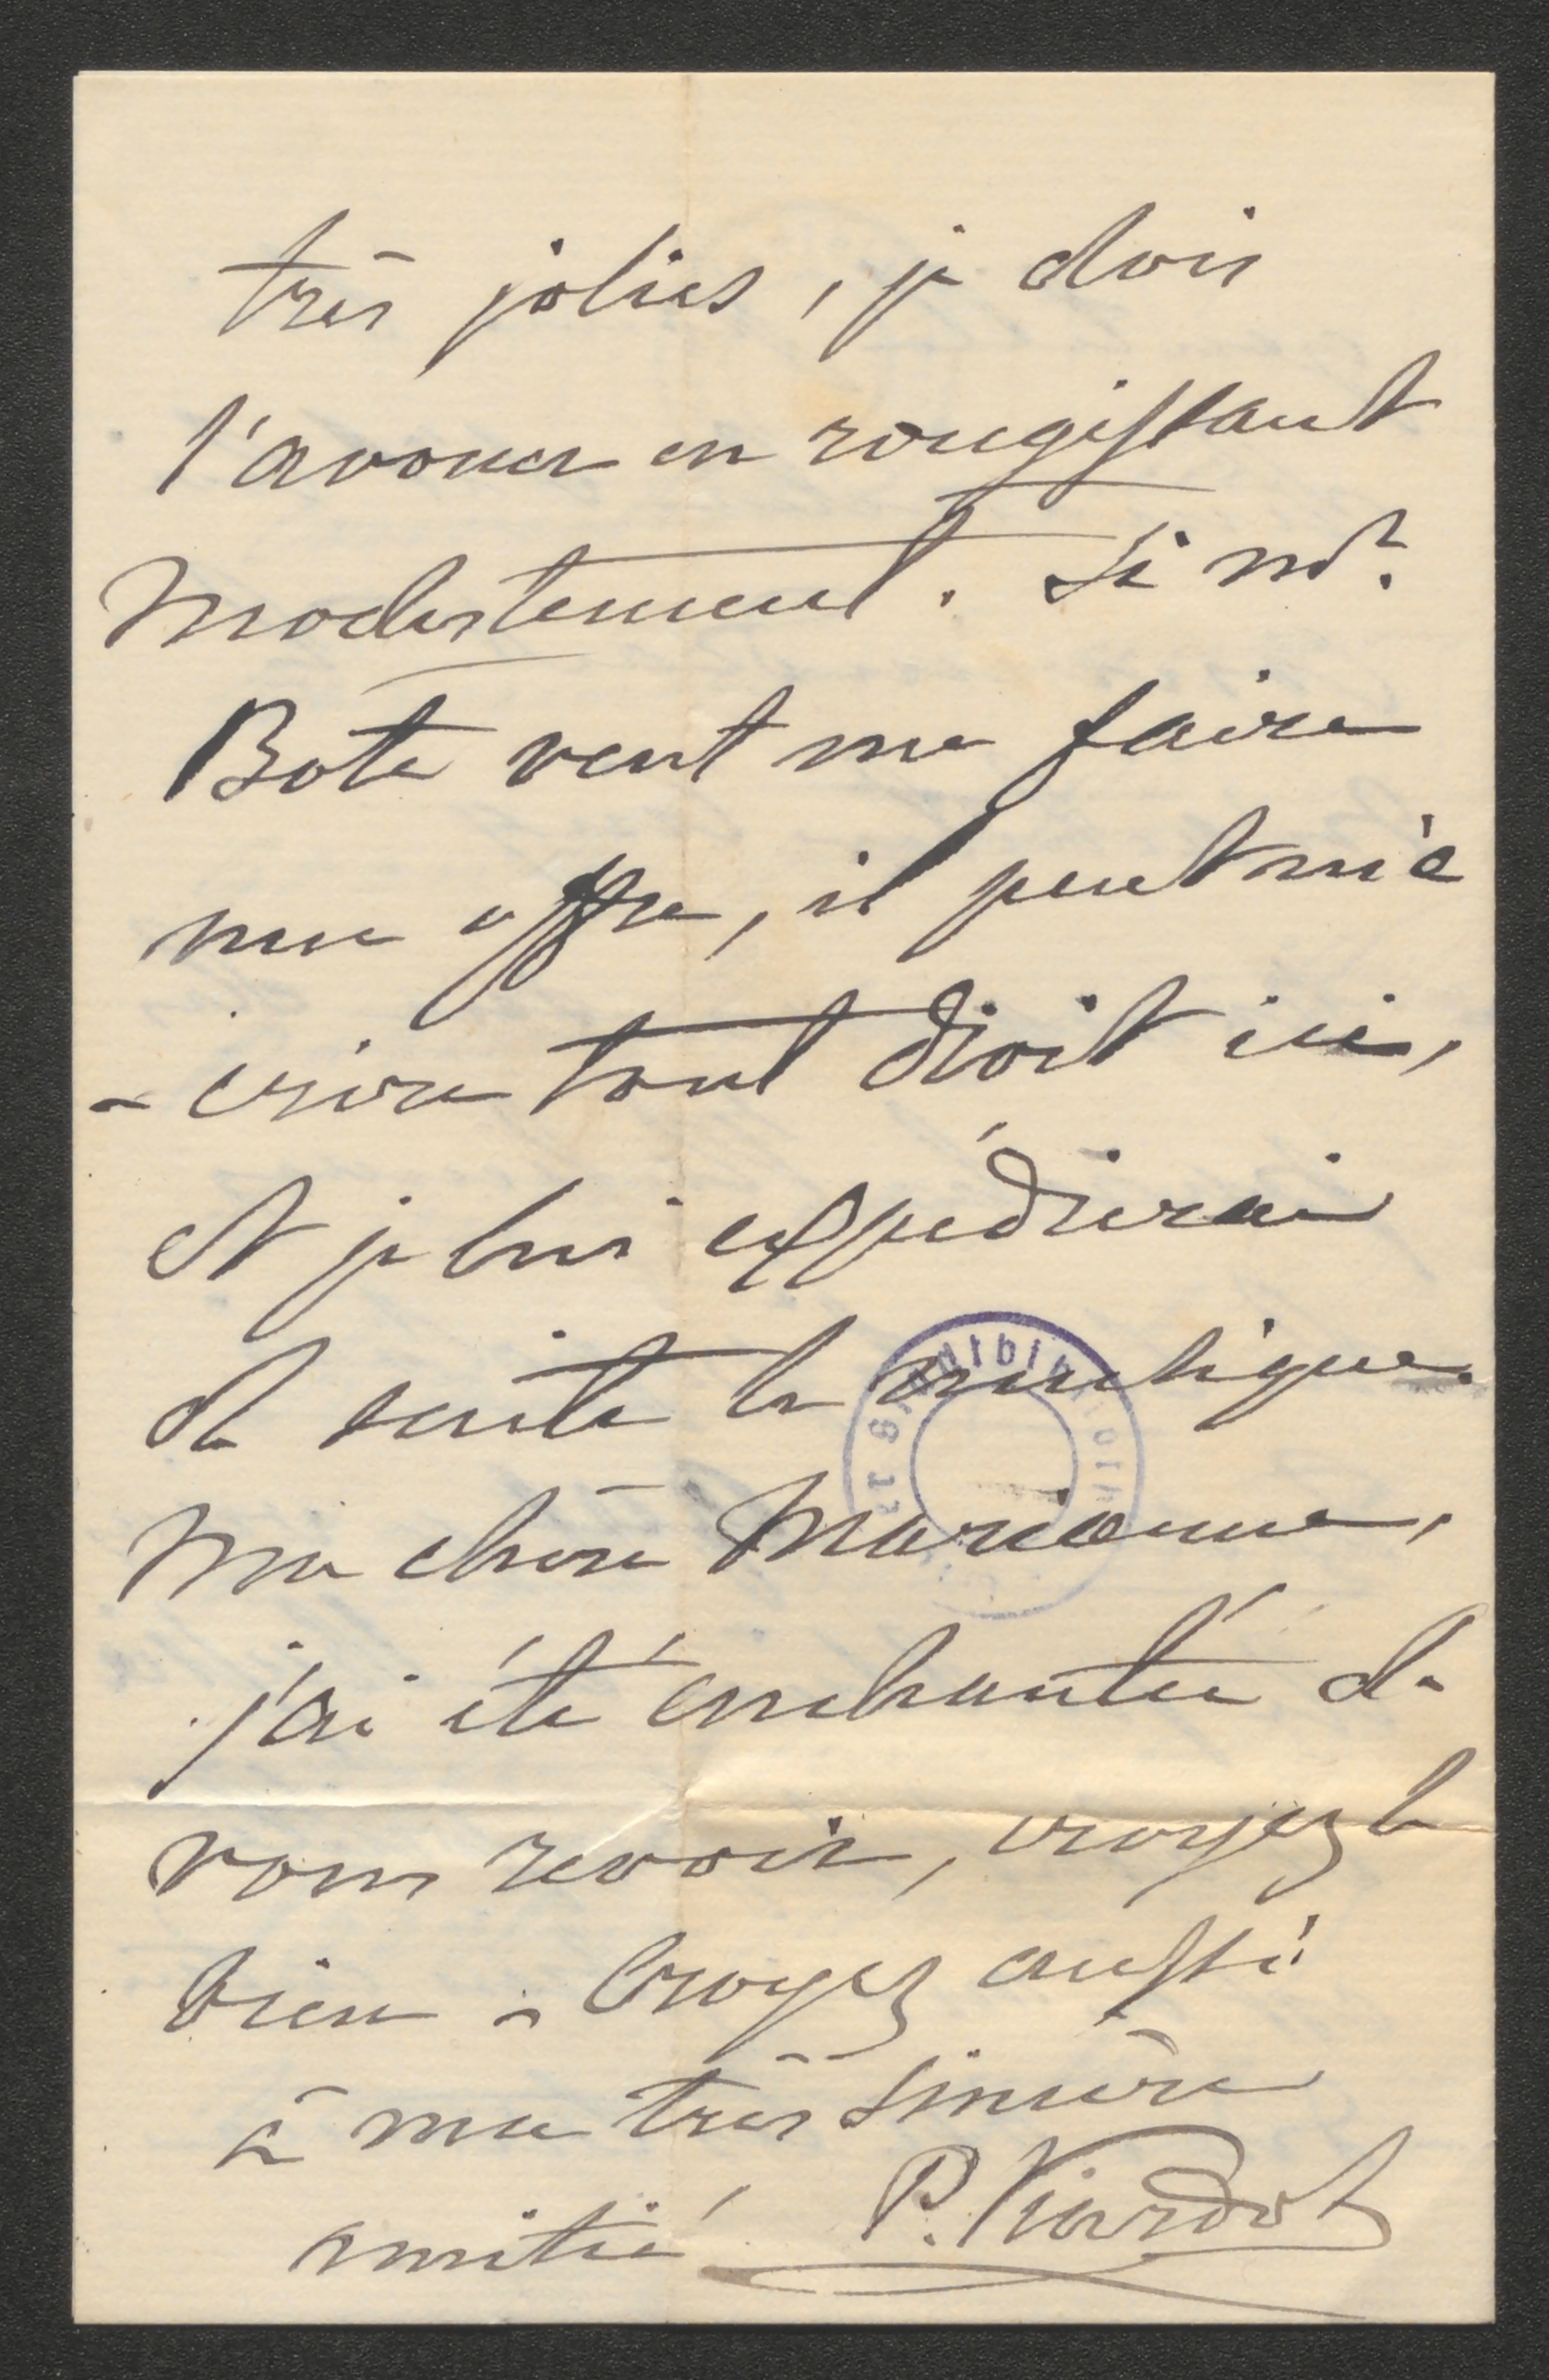 très jolies, je dois
l'avouer en rougissant
modestement. Si Mr.
Bote veut me faire
une offre, il peut m'é
- crire tout droit ici,
et je lui expédierai
de suite la musique.
Ma chère Marianne,
j'ai été enchantée de
vous revoir, croyez le
bien - Croyez aussi
à ma très sincère
amitié P. Viardot